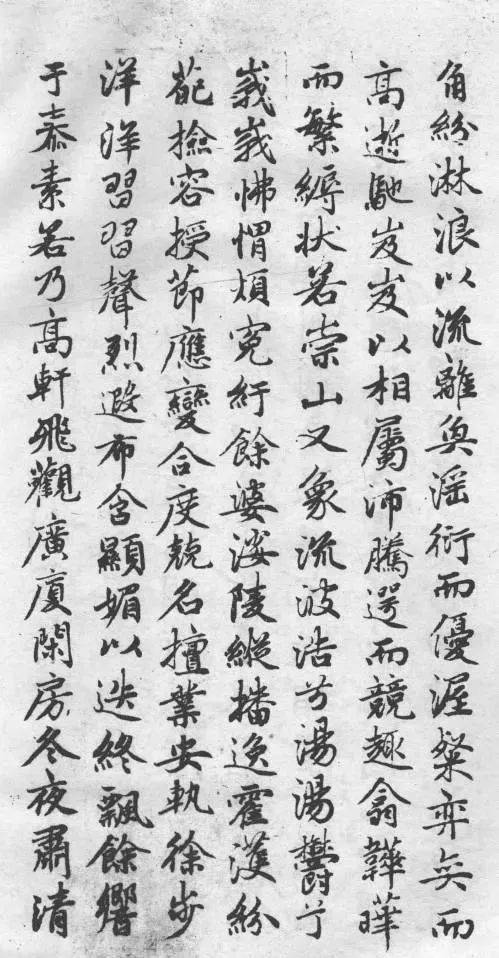 角紛淋浪以流離奐淫衍而優渥粲弈弈而
高逝馳岌岌以相屬沛騰遌而競趣翕韡曄
而繁縟狀若崇山又象流波浩兮湯湯鬱兮
峩峩怫㥜煩寃紆餘婆娑陵縱播逸霍濩紛
葩撿容授節應變合度兢名擅業安軌徐步
洋洋習習聲烈遐布含顯媚以送終飄餘響
于泰素若乃高軒飛觀廣廈閑房冬夜肅清